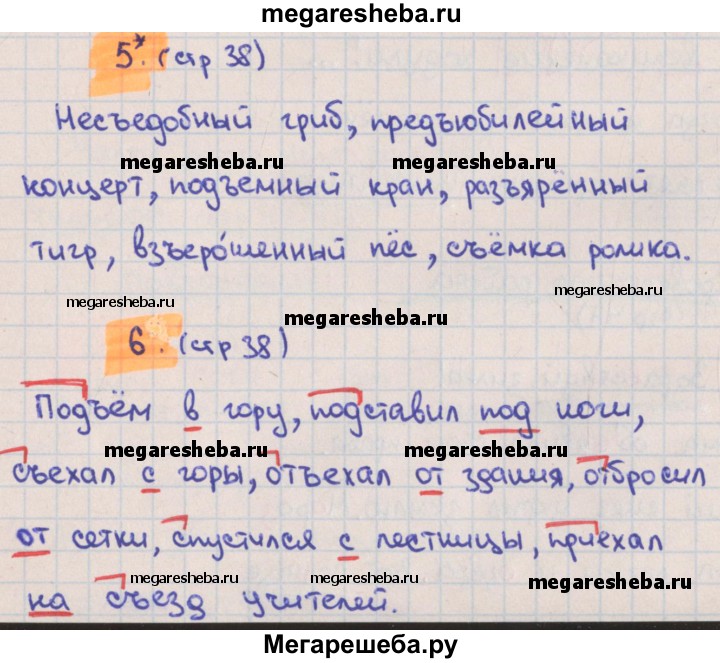 megaresheba.ru
5*. (стр 38)
Несъедобный гриб, предъюбилейный
megaresheba.ru megaresheba.ru
концерт, подъемный кран, разъярённый
тигр, взъеро́шенный пёс, съёмка ролика.
megaresheba.ru megaresheba.ru megaresheba.ru
6. (стр 38)
Подъём в гору, подставил под ноги,
megaresheba.ru megaresheba.ru
съехал с горы, отъехал от здания, отбросил
от сетки, спустился с лестницы, приехал
megaresheba.ru megaresheba.ru megaresheba.ru
на съезд учителей.
Мегарешеба.ру